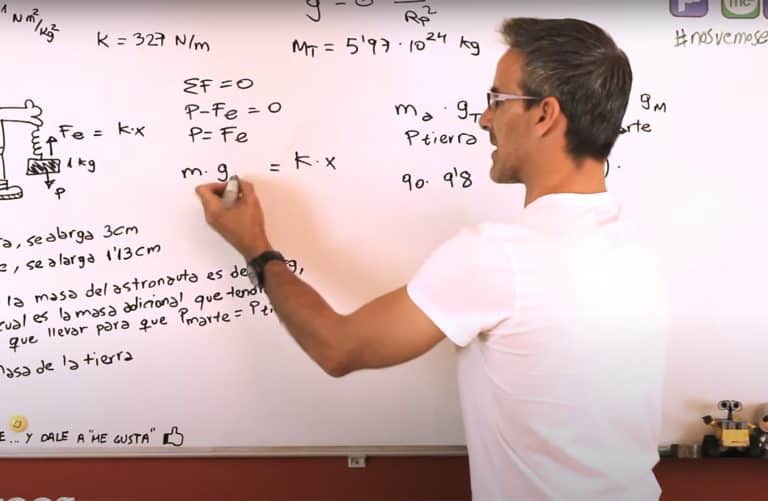 N m²/kg²
g =
Rp²
#nosvemose
K = 327 N/m
M_T = 5'97 · 10²⁴ kg
ΣF = 0
P - Fe = 0
P = Fe
m · g = K · x
Fe = K·x
1 kg
P
ma · gT
gM
Ptierra
arte
90 · 9'8
, se alarga 3cm
, se alarga 1'13cm
la masa del astronauta es de
cual es la masa adicional que
que llevar para que Pmarte =
masa de la tierra
... Y DALE A "ME GUSTA"